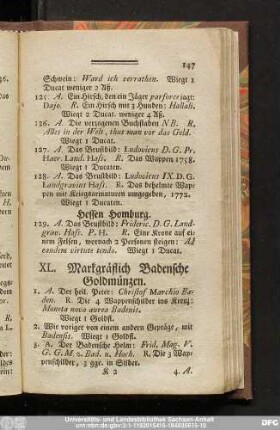 147
Schwein: Ward ich verrathen. Wiegt 1
Ducat weniger 2 Aß.
125. A. Ein Hirsch, den ein Jäger parforce jagt:
Dajo. R. Ein Hirsch mit 3 Hunden: Hallali.
Wiegt 2 Ducat. weniger 4 Aß.
126. A. Die verzogenen Buchstaben N B. R.
Alles in der Welt, thut man vor das Geld.
Wiegt 1 Ducat.
127. A. Das Brustbild: Ludovicus D. G. Pr.
Haer. Land. Hass. R. Das Wappen 1758.
Wiegt 1 Ducaten.
128. A. Das Brustbild: Ludovicus IX. D. G.
Landgravius Hass. R. Das behelmte Wap-
pen mit Kriegsarmaturen umgeben, 1772.
Wiegt 1 Ducaten.
Hessen Homburg.
129. A. Das Brustbild: Frideric. D. G. Land-
grav. Hass. P. H. R. Eine Krone auf ei-
nem Felsen, wornach 2 Personen steigen: Ad
eandem virtute tendo. Wiegt 1 Ducat.
XL. Markgräflich Badensche
Goldmünzen.
1. A. Der heil. Peter: Christof Marchio Ba-
den. R. Die 4 Wappenschilder ins Kreuz:
Moneta nova aurea Badensis.
Wiegt 1 Goldfl.
2. Wie voriger von einem andern Gepräge, mit
Badensis. Wiegt 1 Goldfl.
3. A. Der Badensche Helm: Frid. Mag. V.
G. G. M. z. Bad. u. Hoch. R. Die 3 Wap-
penschilder, 3 ggr. in Silber.
K 2
4. A.
Universitäts- und Landesbibliothek Sachsen-Anhalt